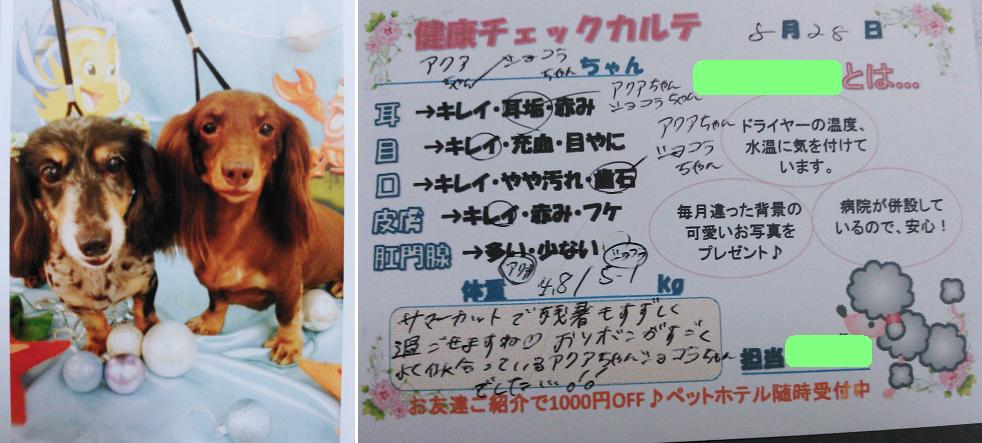 健康チェックカルテ
8月28日
アクア
ちゃん
ショコラ
ちゃん
ちゃん
とは...
耳 →キレイ・耳垢・赤み
アクアちゃん
ショコラちゃん
目 →キレイ・充血・目やに
アクアちゃん
ショコラ
ちゃん
口 →キレイ・やや汚れ・歯石
皮膚 →キレイ・赤み・フケ
肛門腺 →多い・少ない
アクア
ショコラ
体重 4.8/5.1 kg
ドライヤーの温度、
水温に気を付けて
います。
毎月違った背景の
可愛いお写真を
プレゼント♪
病院が併設して
いるので、安心！
サマーカットで残暑もすずしく
過ごせますね♡ おリボンがすごく
よく似合っているアクアちゃんショコラちゃん
でした
担当
お友達ご紹介で1000円OFF♪ペットホテル随時受付中